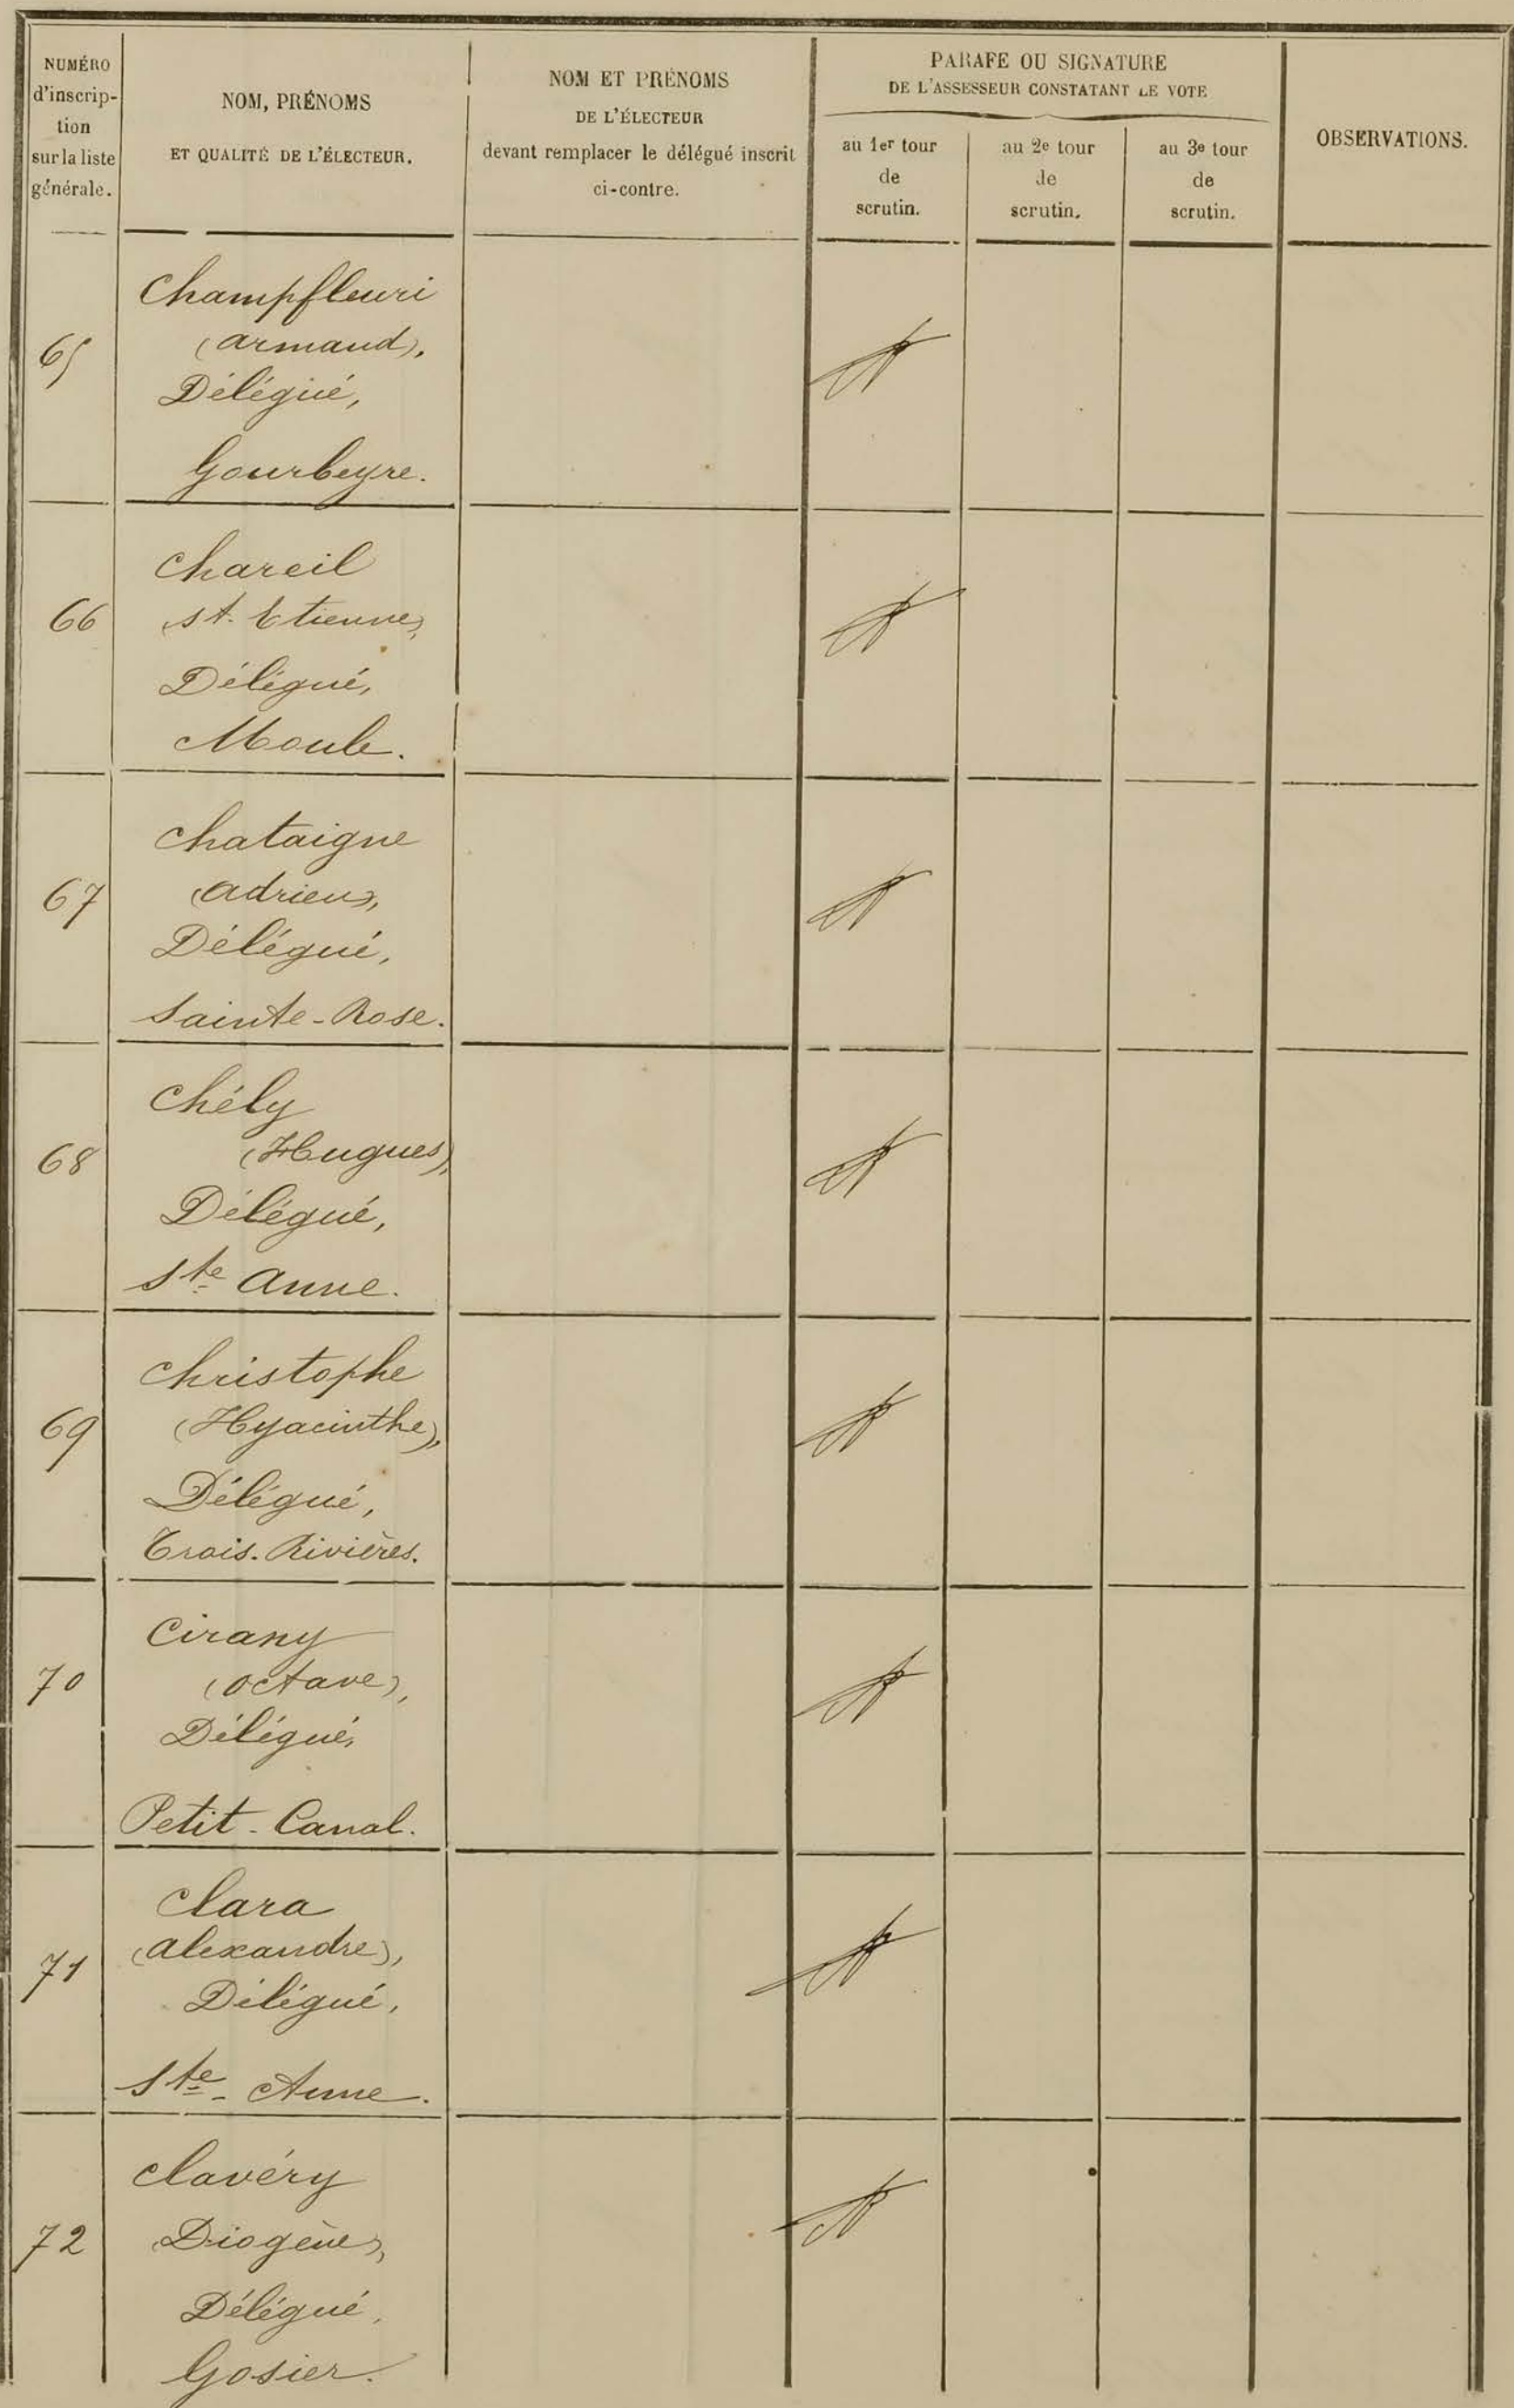 NUMÉRO
d'inscrip-
tion
sur la liste
générale.
NOM, PRÉNOMS
ET QUALITÉ DE L'ÉLECTEUR.
NOM ET PRÉNOMS
DE L'ÉLECTEUR
devant remplacer le délégué inscrit
ci-contre.
PARAFE OU SIGNATURE
DE L'ASSESSEUR CONSTATANT LE VOTE
au 1er tour
de
scrutin.
au 2e tour
de
scrutin.
au 3e tour
de
scrutin.
OBSERVATIONS.
65
Champfleuri
(Armand),
Délégué,
Gourbeyre.
66
Chareil
(St. Etienne),
Délégué,
Moule.
67
Chataigne
(Adrien),
Délégué,
Sainte-Rose.
68
Chély
(Hugues),
Délégué,
Ste Anne.
69
Christophe
(Hyacinthe),
Délégué,
Trois-Rivières.
70
Cirany
(Octave),
Délégué,
Petit-Canal.
71
Clara
(Alexandre),
Délégué,
Ste-Anne.
72
Clavéry
(Diogène),
Délégué,
Gosier.